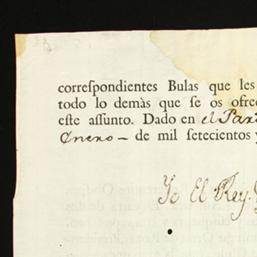 correspondientes Bulas que les
todo lo demàs que se os ofre
este assunto. Dado en el Par
Enero – de mil setecientos y
Yo El Rey.